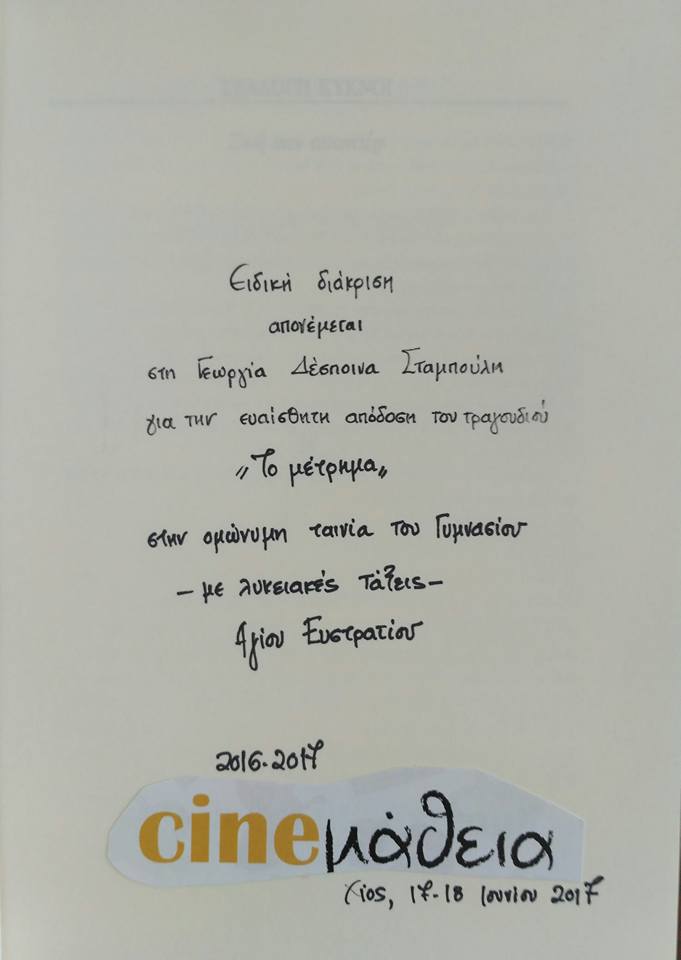 Ειδική διάκριση
απονέμεται
στη Γεωργία Δέσποινα Σταμπούλη
για την ευαίσθητη απόδοση του τραγουδιού
„Το μέτρημα„
στην ομώνυμη ταινία του Γυμνασίου
- με λυκειακές τάξεις -
Αγίου Ευστρατίου
2016-2017
cineμάθεια
Χίος, 17-18 Ιουνίου 2017